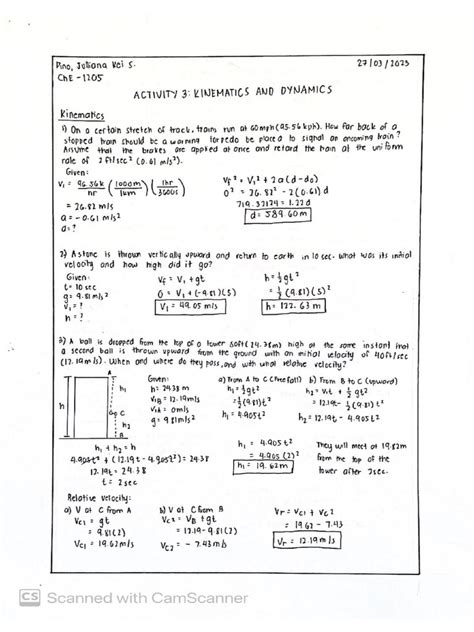 Pino, Juliana Kei S.
27/03/2023
ChE - 1205
ACTIVITY 3: KINEMATICS AND DYNAMICS
Kinematics
1) On a certain stretch of track, trains run at 60mph (96.56kph). How far back of a
stopped train should be a warning torpedo be placed to signal an oncoming train?
Assume that the brakes are applied at once and retard the train at the uniform
rate of 2 ft/sec² (0.61 m/s²).
Given:
= 26.82 m/s
a = -0.61 m/s²
d = ?
Vf² = V1² + 2a(d-d0)
0² = 26.82² - 2(0.61)d
719.3124 = 1.22d
d = 589.60m
2) A stone is thrown vertically upward and return to earth in 10 sec. What was its initial
velocity and how high did it go?
Given:
t = 10 sec
g = 9.81 m/s²
V1 = ?
h = ?
Vf = V1 + gt
0 = V1 + (-9.81)(5)
V1 = 49.05 m/s
h = ½gt²
= ½(9.81)(5)²
h = 122.63 m
3) A ball is dropped from the top of a tower 80ft (24.38m) high at the same instant that
a second ball is thrown upward from the ground with an initial velocity of 40ft/sec
(12.19m/s). When and where do they pass, and with what relative velocity?
h
h1
C
h2
B
Given:
h = 24.38 m
V1B = 12.19m/s
V1A = 0m/s
g = 9.81m/s²
a) From A to C (Free fall)
h1 = ½gt²
= ½(9.81)t²
h1 = 4.905t²
b) From B to C (upward)
h2 = V1t + ½gt²
= 12.19t - ½(9.81)t²
h2 = 12.19t - 4.905t²
h1 + h2 = h
4.905t² + (12.19t - 4.905t²) = 24.38
12.19t = 24.38
t = 2sec
h1 = 4.905t²
= 4.905(2)²
h1 = 19.62m
They will meet at 19.62m
from the top of the
tower after 2sec.
Relative velocity:
a) V at C from A
VC1 = gt
= 9.81(2)
VC1 = 19.62m/s
b) V at C from B
VC2 = VB + gt
= 12.19 - 9.81(2)
VC2 = -7.43 m/s
Vr = VC1 + VC2
= 19.62 - 7.43
Vr = 12.19 m/s
CS Scanned with CamScanner